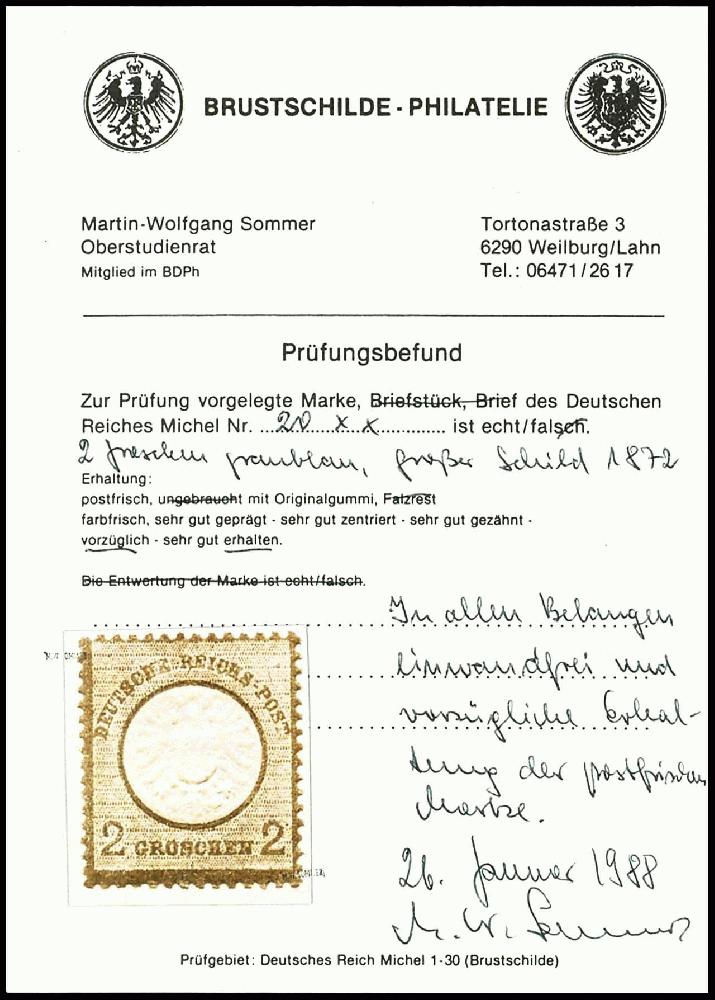 BRUSTSCHILDE - PHILATELIE
Martin-Wolfgang Sommer
Oberstudienrat
Mitglied im BDPh
Tortonastraße 3
6290 Weilburg/Lahn
Tel.: 06471/26 17
Prüfungsbefund
Zur Prüfung vorgelegte Marke, Briefstück, Brief des Deutschen
Reiches Michel Nr. ...20...x x............. ist echt/falsch.
2 Groschen graublau, großer Schild 1872
Erhaltung:
postfrisch, ungebraucht mit Originalgummi, Falzrest
farbfrisch, sehr gut geprägt - sehr gut zentriert - sehr gut gezähnt -
vorzüglich - sehr gut erhalten.
Die Entwertung der Marke ist echt/falsch.
In allen Belangen
einwandfrei und
vorzügliche Erhal-
tung der postfrischen
Marke.
26. Januar 1988
M. W. Sommer
DEUTSCHE REICHS-POST
2 GROSCHEN 2
Prüfgebiet: Deutsches Reich Michel 1-30 (Brustschilde)